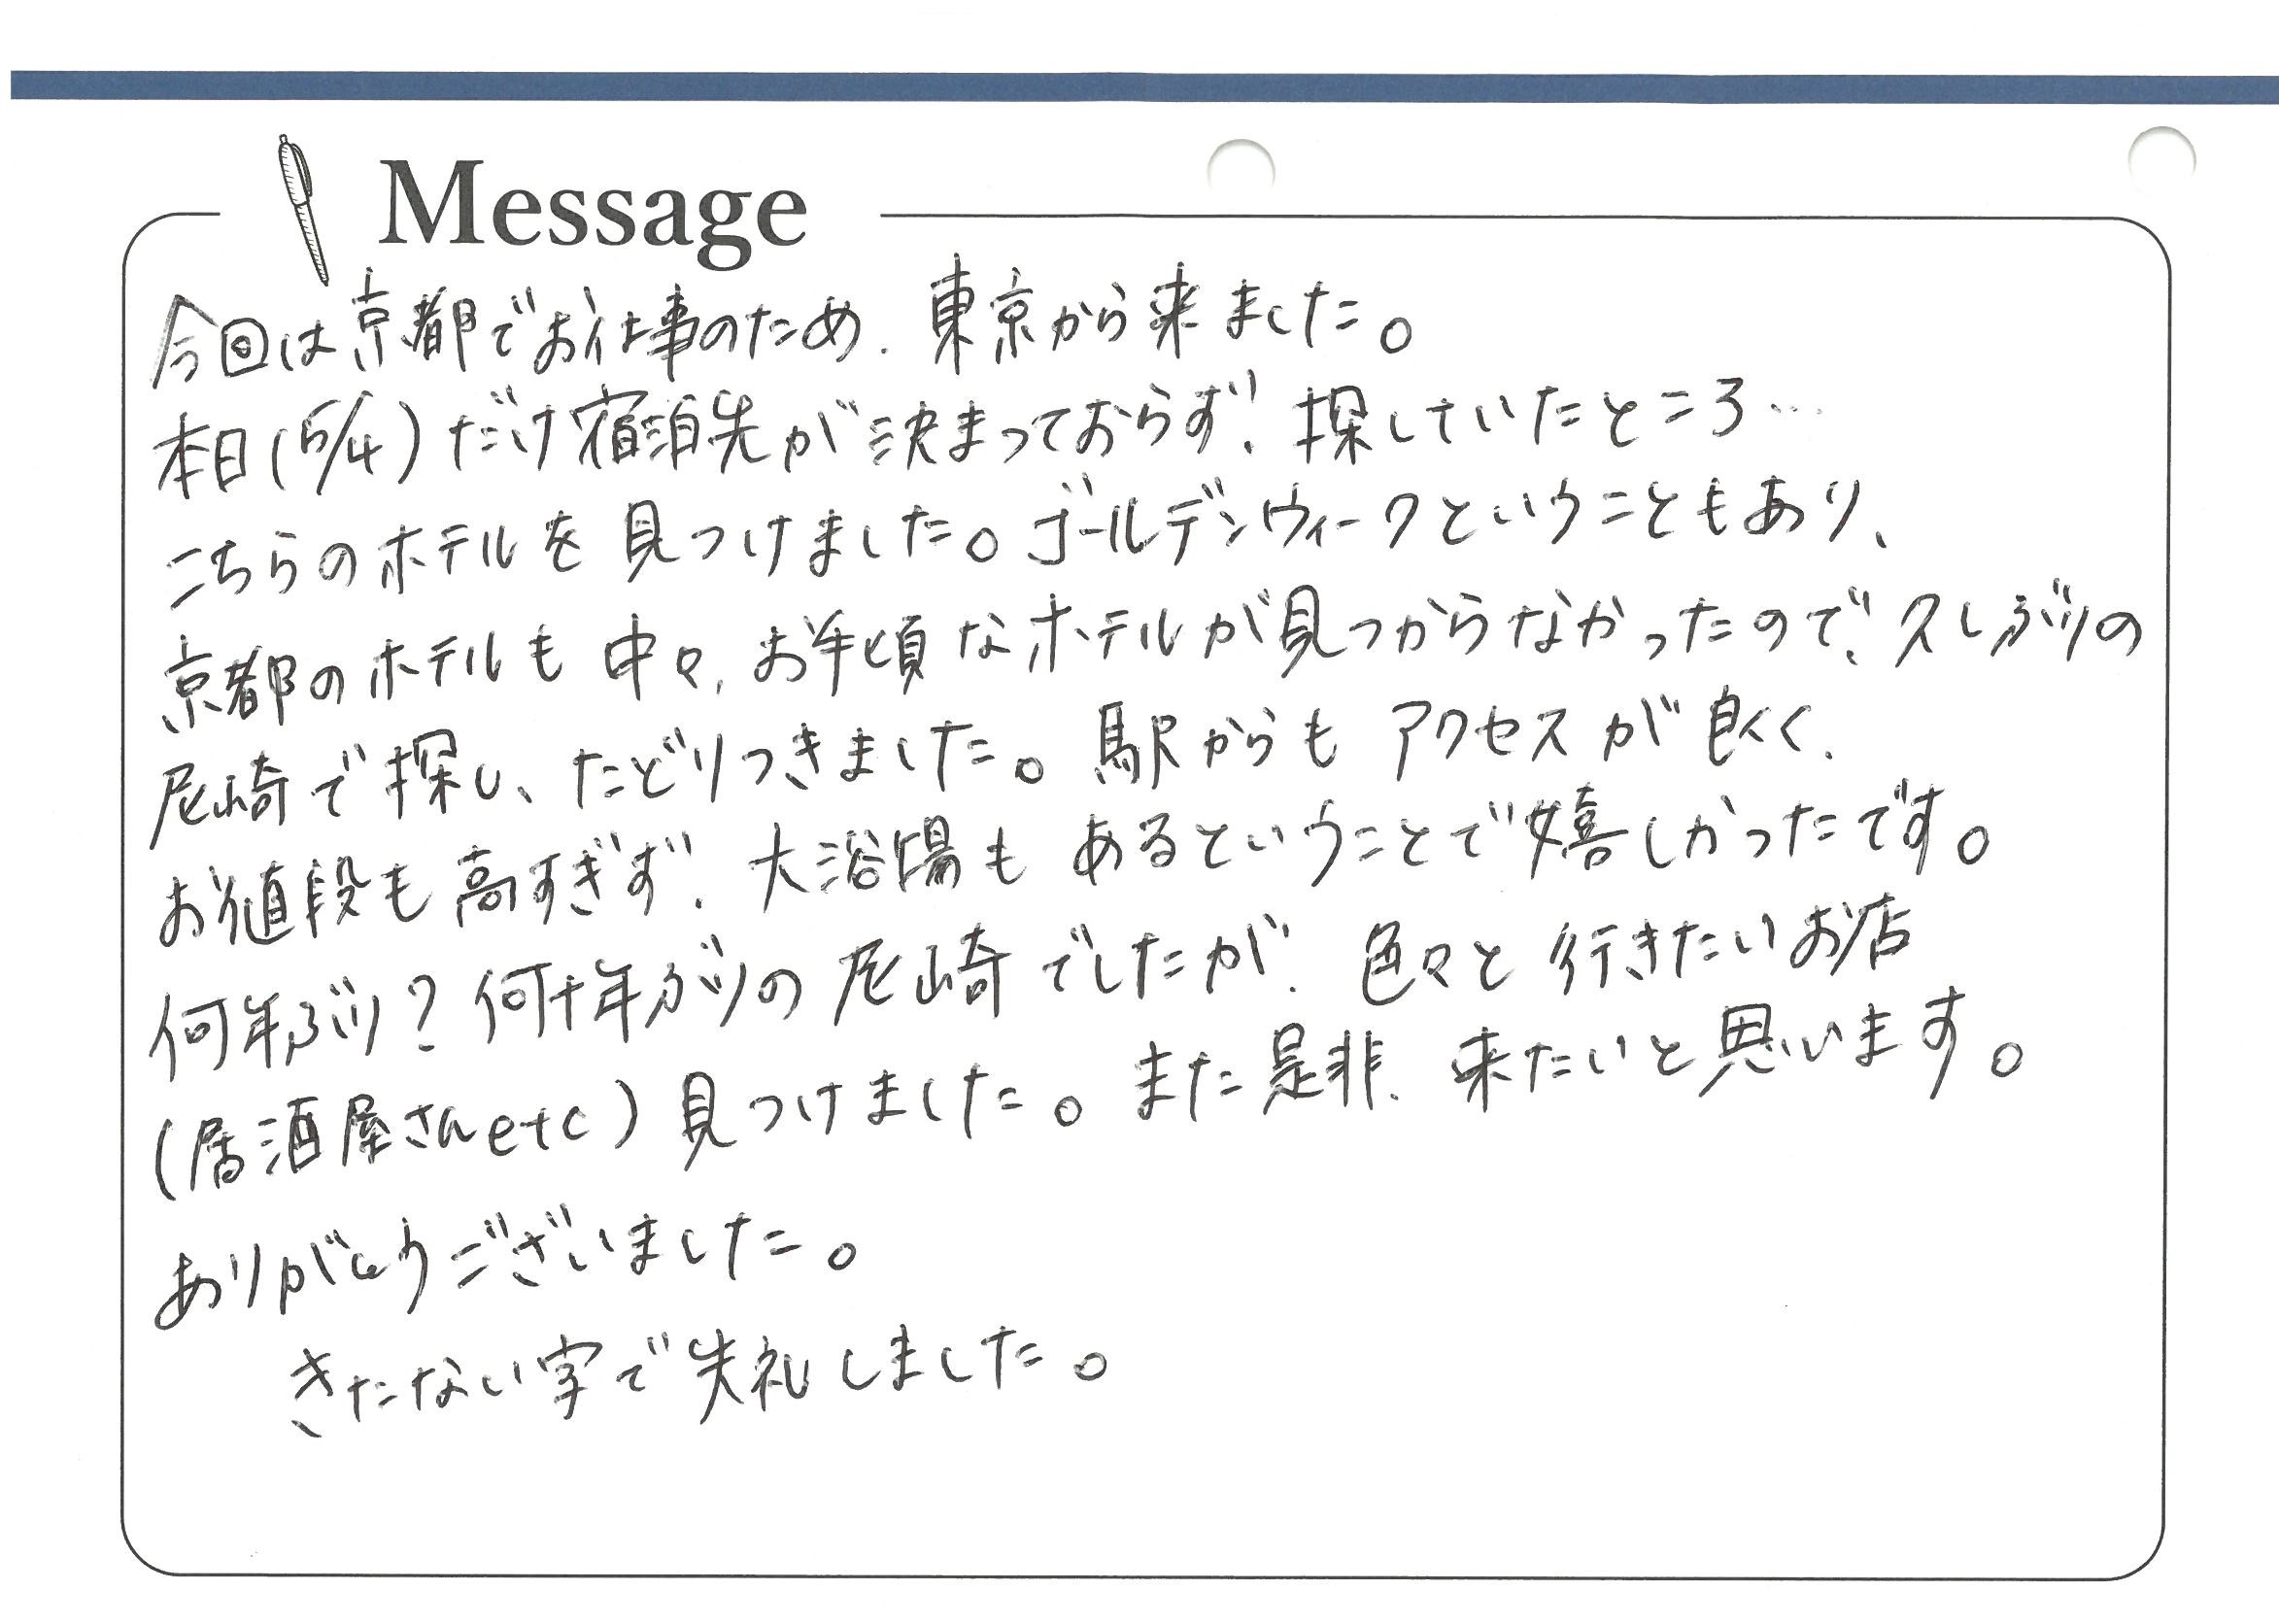 Message
今回は京都でお仕事のため、東京から来ました。
本日(5/4)だけ宿泊先が決まっておらず、探していたところ…
こちらのホテルを見つけました。ゴールデンウィークということもあり、
京都のホテルも中々、お手頃なホテルが見つからなかったので、久しぶりの
尼崎で探し、たどりつきました。駅からもアクセスが良く、
お値段も高すぎず、大浴場もあるということで嬉しかったです。
何年ぶり?何十年ぶりの尼崎でしたが、色々と行きたいお店
(居酒屋さんetc)見つけました。また是非、来たいと思います。
ありがとうございました。
きたない字で失礼しました。